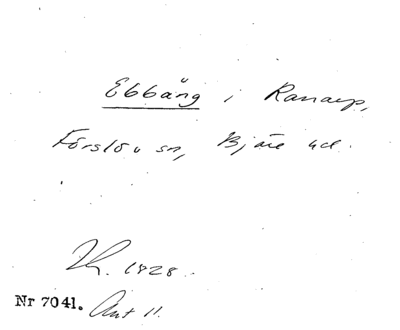 Ebbäng i Ranarp,
Förslöv sn, Bjäre hd.
Th. 1828.
Nr 7041. Ant 11.